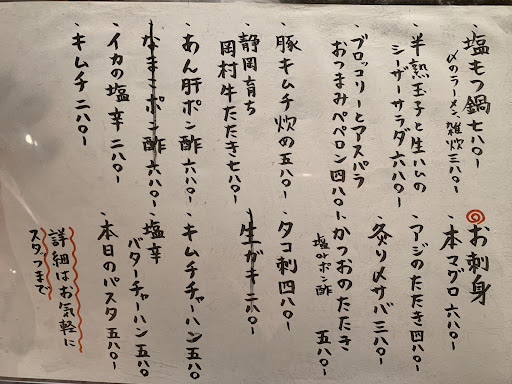 ・塩モツ鍋 七八〇ー
〆のラーメン、雑炊 三八〇ー
・半熟玉子と生ハムの
シーザーサラダ 六八〇ー
・ブロッコリーとアスパラ
おつまみペペロン 四八〇ー
・豚キムチ炊め 五八〇ー
・静岡育ち
岡村牛たたき 七八〇ー
・あん肝ポン酢 六八〇ー
・なまこポン酢 六八〇ー
・イカの塩辛 二八〇ー
・キムチ 二八〇ー
お刺身
・本マグロ 六八〇ー
・アジのたたき 四八〇ー
・炙り〆サバ 三八〇ー
・かつおのたたき
塩orポン酢 五八〇ー
・タコ刺 四八〇ー
・生ガキ 二八〇ー
・キムチチャーハン 五八〇
・塩辛
バターチャーハン 五八〇
・本日のパスタ 五八〇ー
詳細はお気軽に
スタッフまで